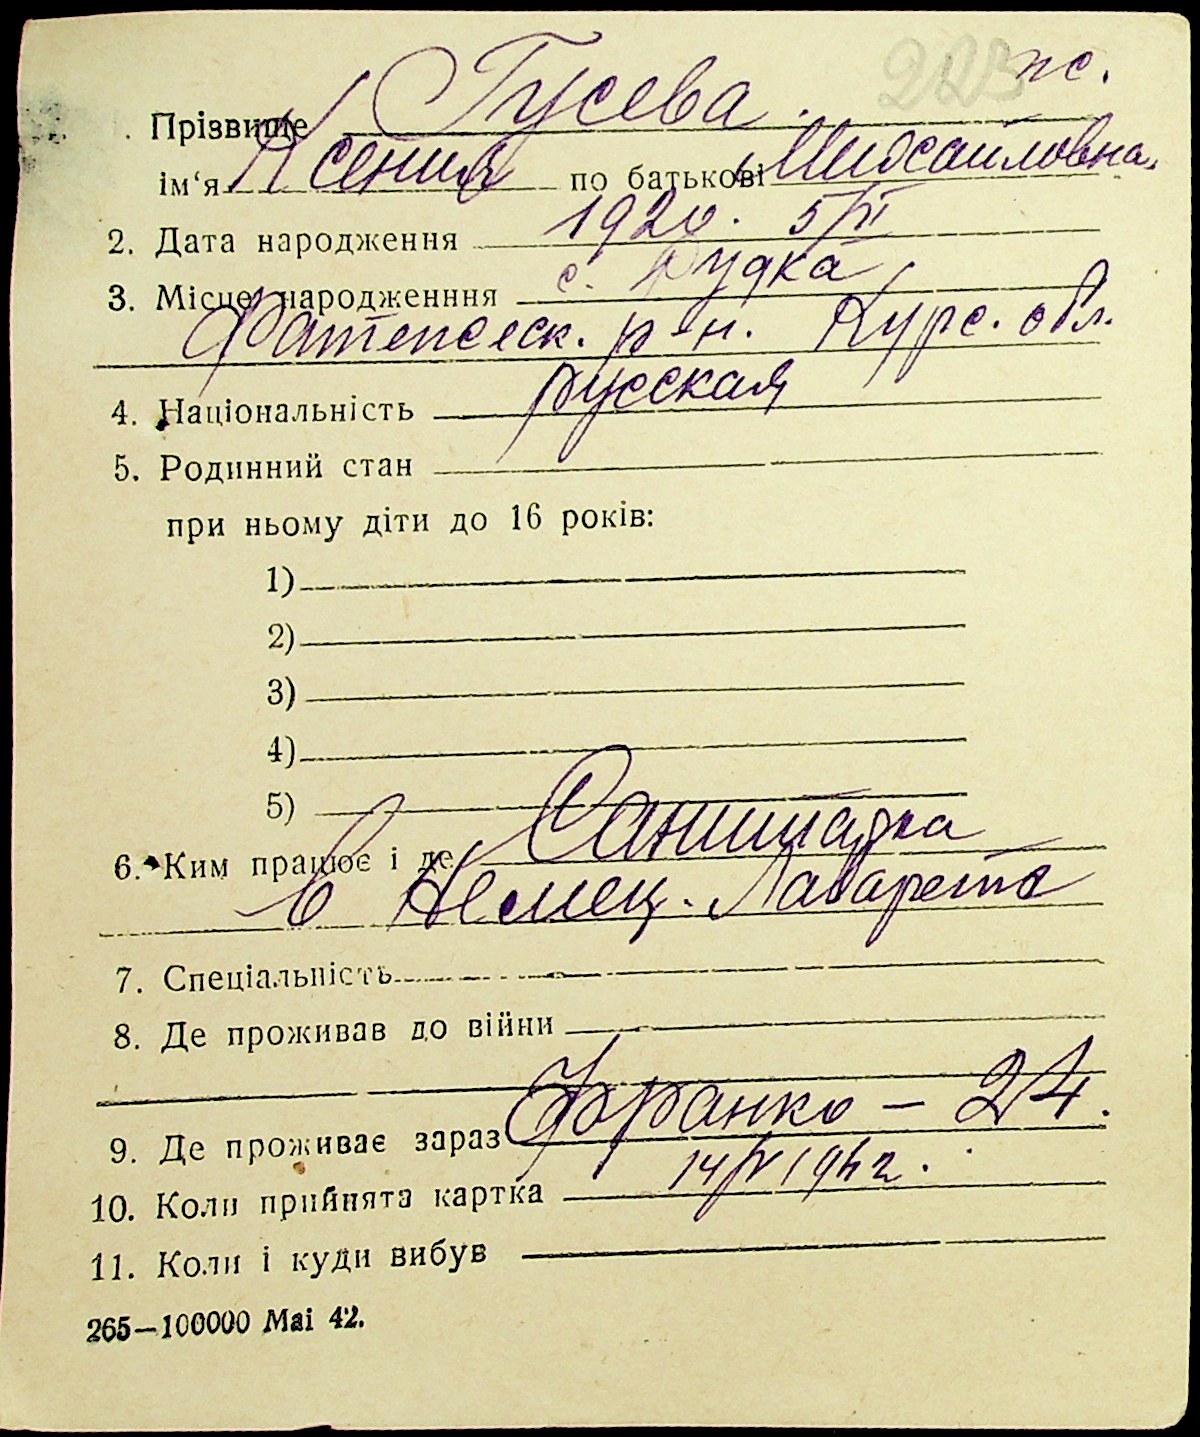 223 пс.
Прізвище Гусева.
ім‘я Ксения по батькові Михайловна.
2. Дата народження 1920. 5/VI
3. Місце народженння с. Рудка
Фатежеск. р-н. Курс. обл.
4. Національність русская
5. Родинний стан
при ньому діти до 16 років:
1)
2)
3)
4)
5)
6. Ким працює і де Санитарка
в Немец. Лазарете
7. Спеціальність
8. Де проживав до війни
9. Де проживає зараз Франко – 24.
10. Коли прийнята картка 14/IV 1942.
11. Коли і куди вибув
265—100000 Маі 42.